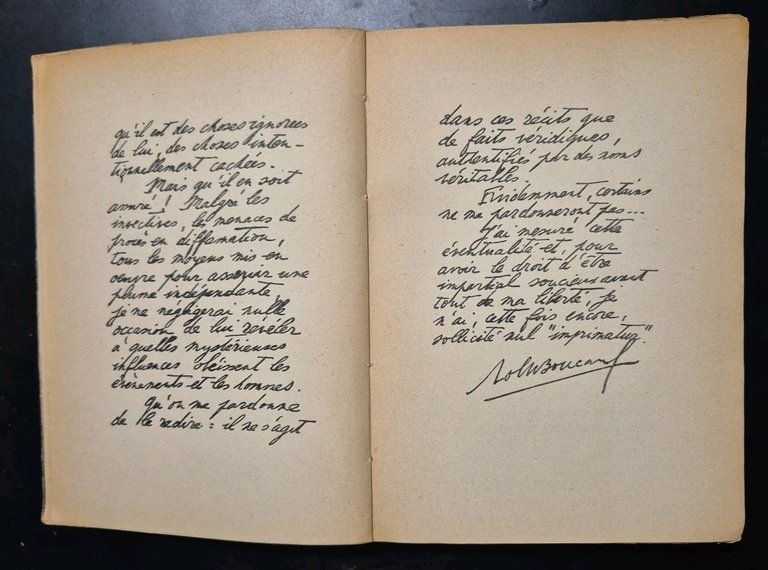 qu'il est des choses ignorées
de lui, des choses inten-
tionnellement cachées.
Mais qu'il en soit
assuré ! Malgré les
invectives, les menaces de
procès en diffamation,
tous les moyens mis en
oeuvre pour asservir une
plume indépendante,
je ne négligerai nulle
occasion de lui révéler
à quelles mystérieuses
influences obéissent les
évènements et les hommes.
Qu'on me pardonne
de le redire : il ne s'agit
dans ces récits que
de faits véridiques,
authentifiés par des noms
véritables.
Evidemment, certains
ne me pardonneront pas...
J'ai mesuré cette
éventualité et, pour
avoir le droit d'être
impartial, soucieux avant
tout de ma liberté, je
n'ai, cette fois encore,
sollicité nul "imprimatur".
Boucard